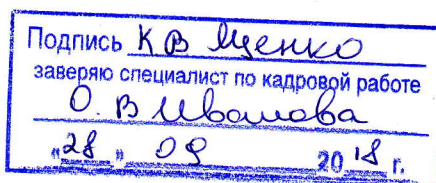 Подпись К В Яценко
заверяю специалист по кадровой работе
О. В Иванова
"28" 09 2018 г.